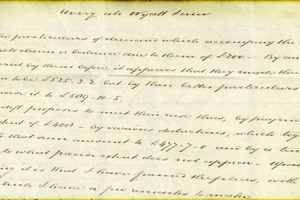 Avery ats Wyatt
particulars of demand which accompany the
claim a balance due to them of £200 - By an
by them
it appears that they made the
to be £525.3.2 but by their better particulars
it to £589-10-5
propose to meet this case thus, by payme
of £400 - by various deductions, which tog
that sum amount to £477-7-0 and by a
to what precise extent does not appear - Upon
it is that I have formed the
which I have a few remarks to make